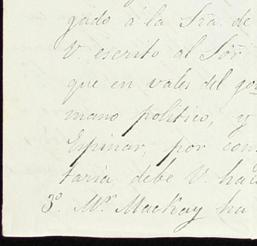 gado á la Sra. de
V. escrito al Sör
que en vales del go
mano politico, y
Espinar, por com
taria debe V. hac
3º. Mr. Mackay ha